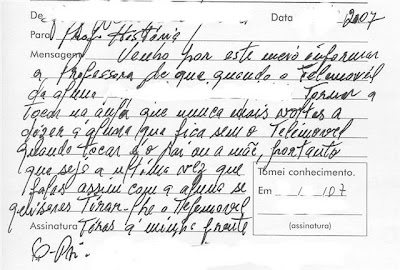 De
Data 2007
Para Prof. História /
Mensagem Venho por este meio informar
a Professora de que quando o Telemovél
da aluna Tornar a
tocar na aula que nunca mais voltes a
dizer a aluna que fica sem o Telemovel
quando tocar o pai ou a mãe, portanto
que seja a ultima vez que
falas assim com a aluna se
quiseres Tirar-lhe o Telemovel
Assinatura Tiras á minha frente
O Pai.
Tomei conhecimento.
Em / 1 / 07
(assinatura)